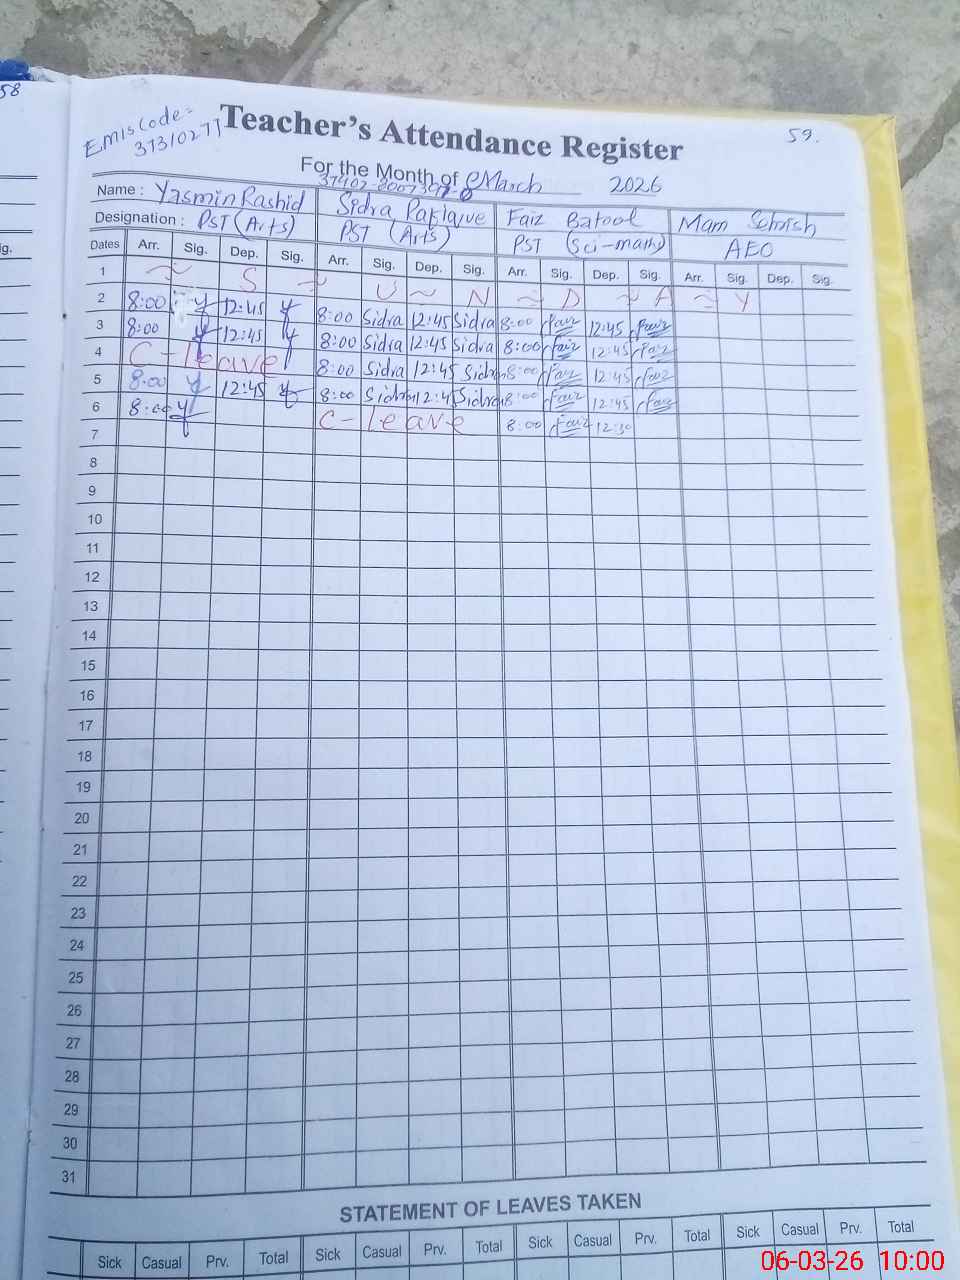 58
59.
Emiscode =
37310277
Teacher's Attendance Register
For the Month of March 2026
Name : Yasmin Rashid Sidra Rafique Faiz Batool Mam Sehrish
Designation : PST (Arts) PST (Arts) PST (Sci-math) AEO
Dates Arr. Sig. Dep. Sig. Arr. Sig. Dep. Sig. Arr. Sig. Dep. Sig. Arr. Sig. Dep. Sig.
1 ~ S ~ U ~ N ~ D ~ A ~ Y
2 8:00 y 12:45 y 8:00 Sidra 12:45 Sidra 8:00 Faiz 12:45 Faiz
3 8:00 y 12:45 y 8:00 Sidra 12:45 Sidra 8:00 Faiz 12:45 Faiz
4 C-leave 8:00 Sidra 12:45 Sidra 8:00 Faiz 12:45 Faiz
5 8:00 y 12:45 y 8:00 Sidra 12:45 Sidra 8:00 Faiz 12:45 Faiz
6 8:00 y C-leave 8:00 Faiz 12:30
7
8
9
10
11
12
13
14
15
16
17
18
19
20
21
22
23
24
25
26
27
28
29
30
31
STATEMENT OF LEAVES TAKEN
Sick Casual Prv. Total Sick Casual Prv. Total Sick Casual Prv. Total Sick Casual Prv. Total
06-03-26 10:00